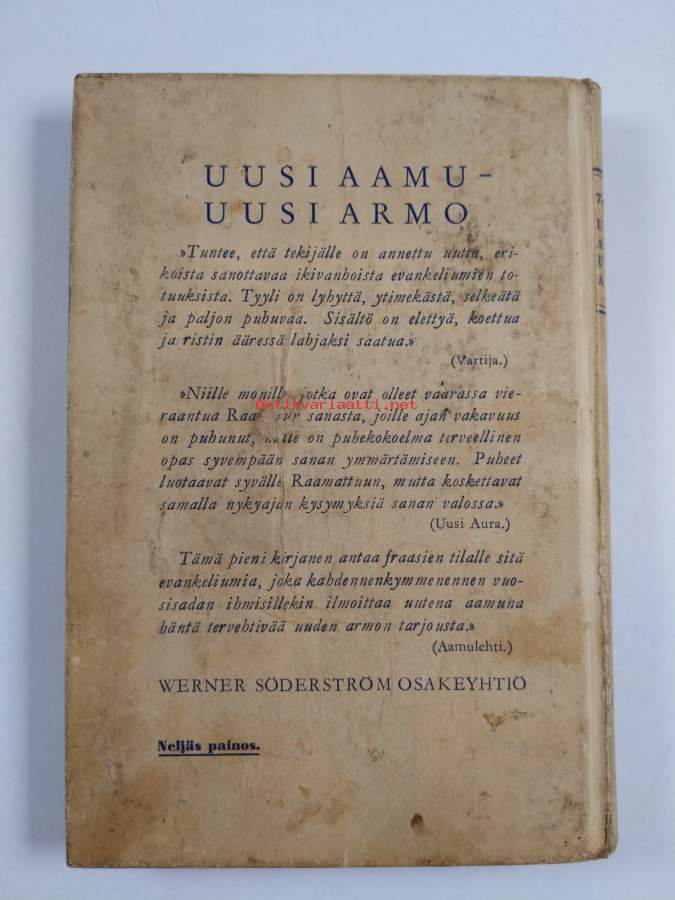 UUSI AAMU -
UUSI ARMO
»Tuntee, että tekijälle on annettu uutta, eri-
koista sanottavaa ikivanhoista evankeliumien to-
tuuksista. Tyyli on lyhyttä, ytimekästä, selkeätä
ja paljon puhuvaa. Sisältö on elettyä, koettua
ja ristin ääressä lahjaksi saatua.»
(Vartija.)
»Niille monille, jotka ovat olleet vaarassa vie-
Antikvariaatti.net
raantua sanasta, joille ajan vakavuus
on puhunut, on puhekokoelma terveellinen
opas syvempään sanan ymmärtämiseen. Puheet
luotaavat syvälle Raamattuun, mutta koskettavat
samalla nykyajan kysymyksiä sanan valossa.»
(Uusi Aura.)
Tämä pieni kirjanen antaa fraasien tilalle sitä
evankeliumia, joka kahdennenkymmenennen vuo-
sisadan ihmisillekin ilmoittaa uutena aamuna
häntä tervehtivää uuden armon tarjousta.»
(Aamulehti.)
WERNER SÖDERSTRÖM OSAKEYHTIÖ
Neljäs painos.